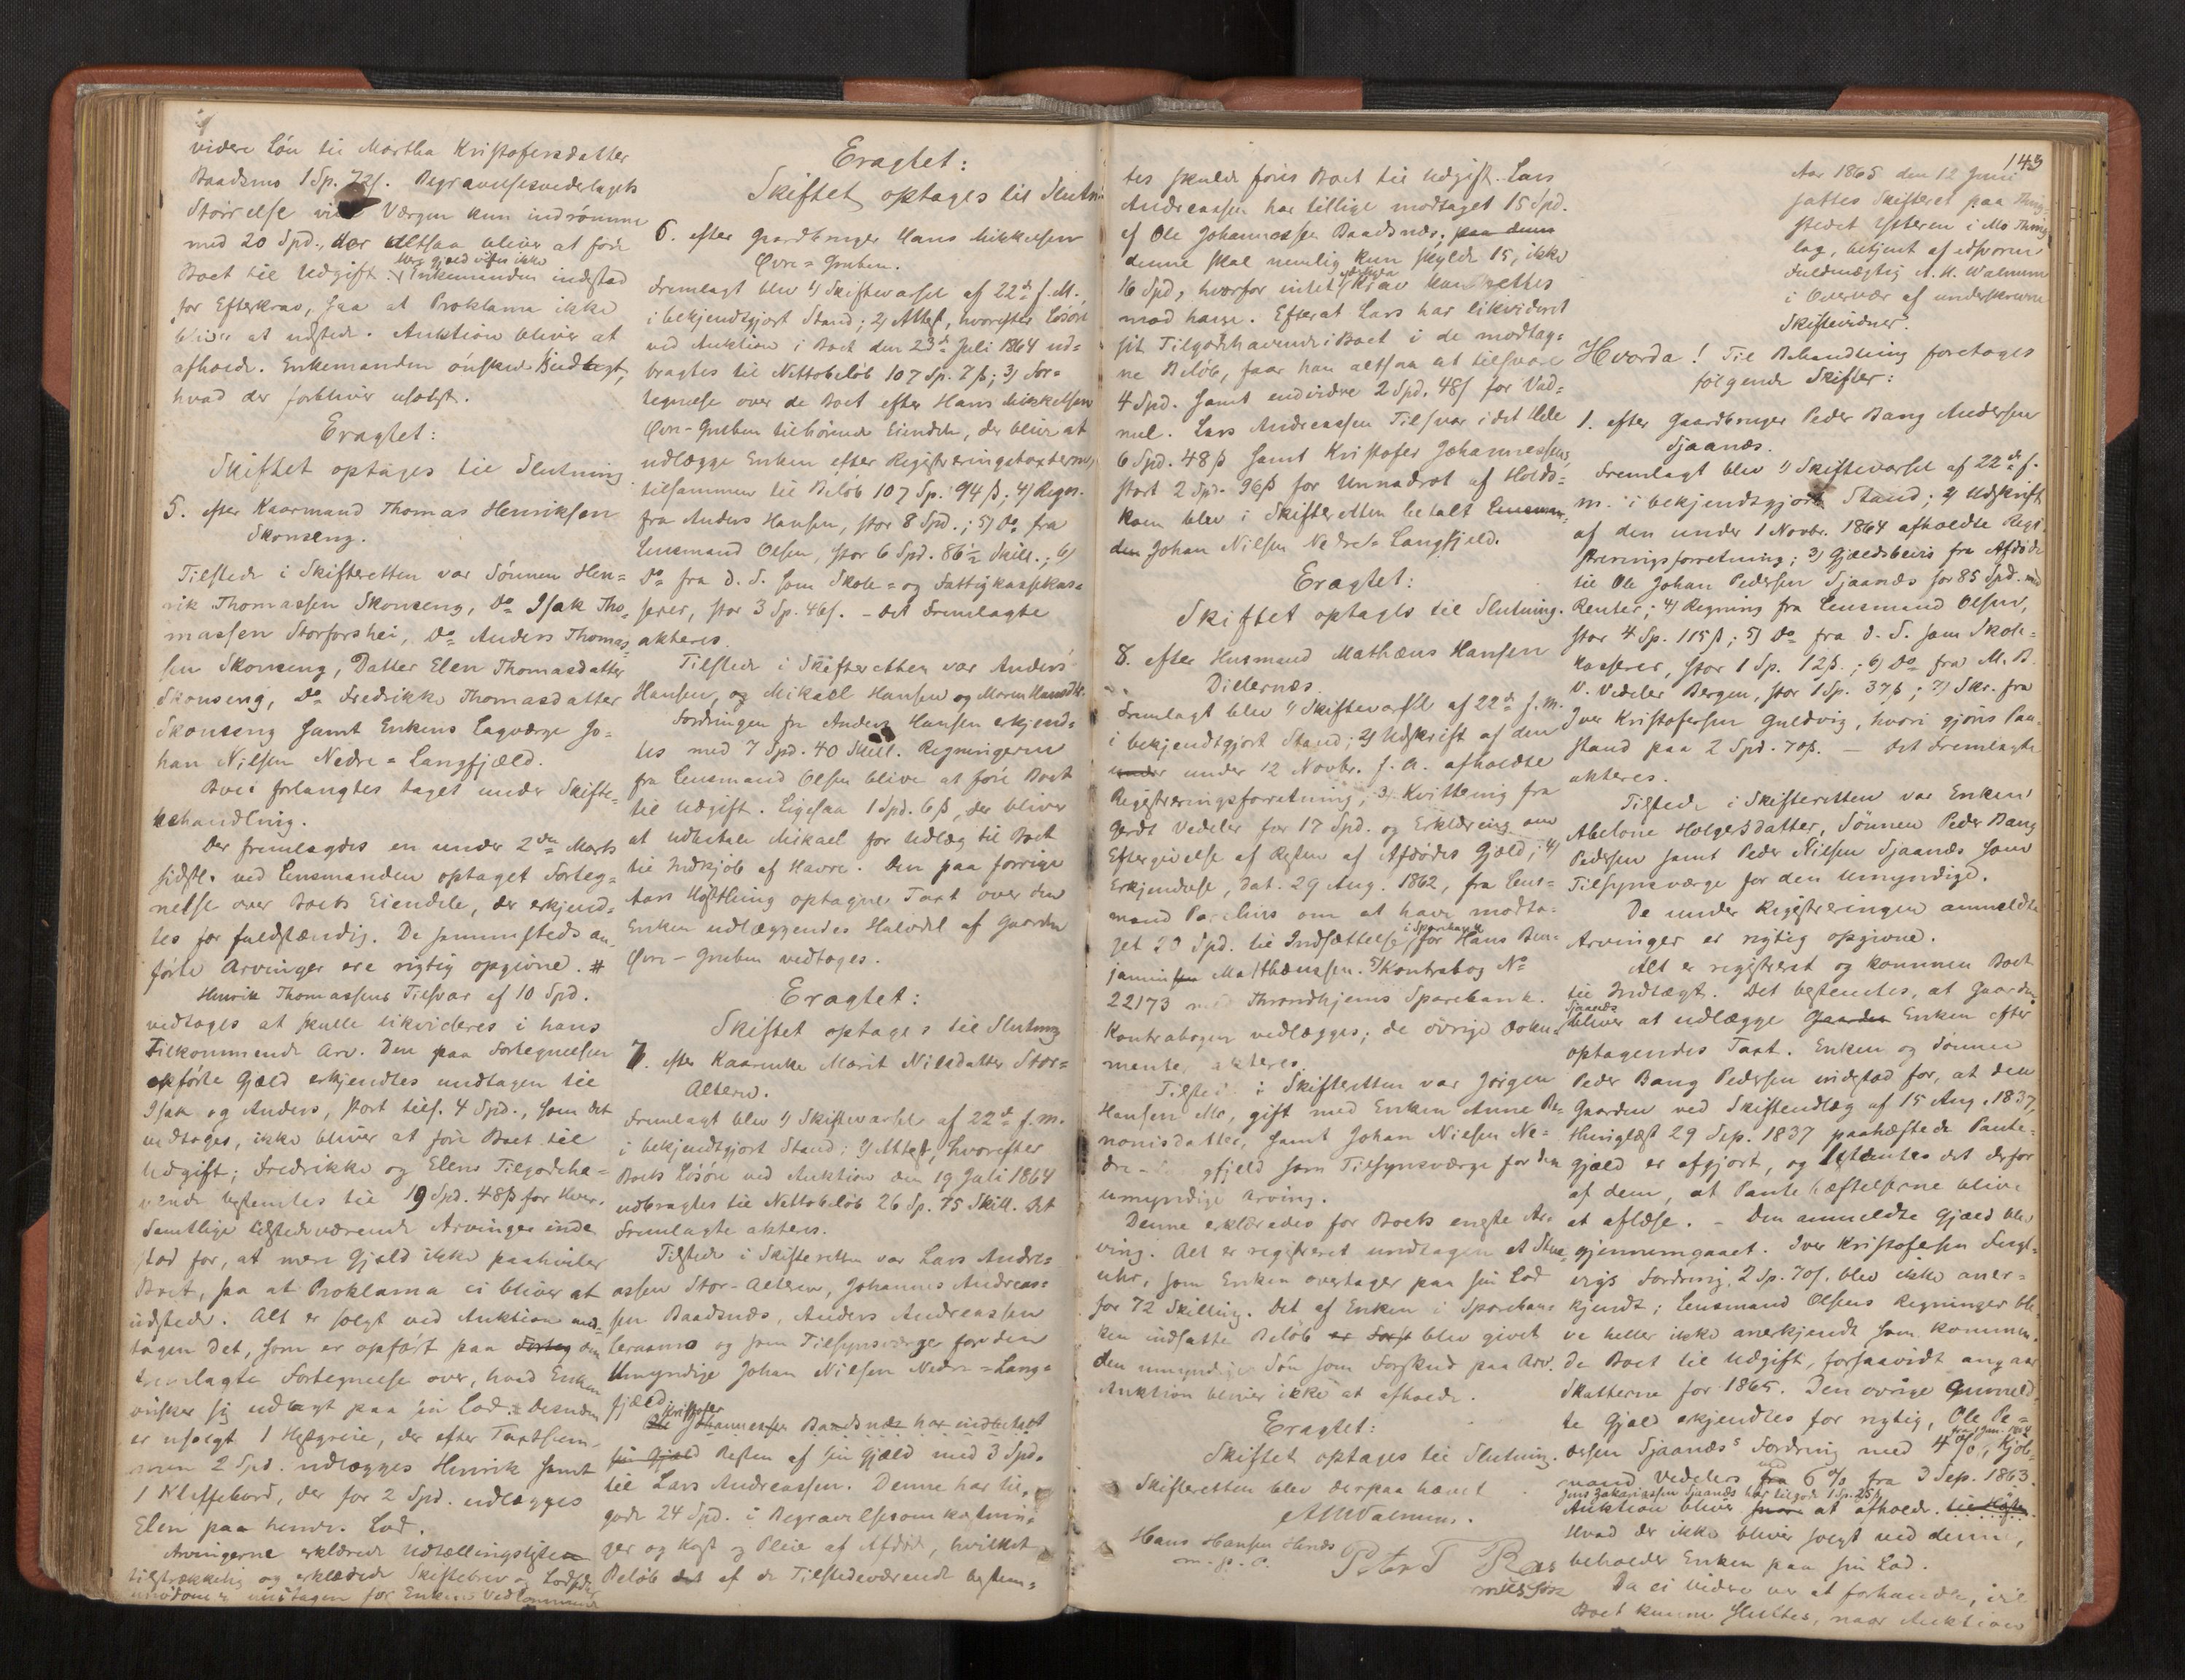 videre Løn til Martha Kristofersdatter
Baadsmo 1 Sp. 72 s. Begravelsesvederlagets
Størrelse vil Værgen kun indrømme
med 20 Spd., der altsaa bliver at føre
Mer gjæld vides ikke
Boet til Udgift. Enkemanden indestod
for Efterkrav, saa at Proklama ikke
bliver at udstede. Auktion bliver at
afholde. Enkemanden ønskede udlagt,
hvad der forbliver usolgt.
Eragtet:
Skiftet optages til Slutning.
5. efter Kaarmand Thomas Henriksen
Skonseng.
Tilstede i Skifteretten var Sønnen Hen=
rik Thomassen Skonseng, Do Isak Tho=
massen Storforshei, Do Anders Thomas=
sen Skonseng, Datter Elen Thomasdatter
Skonseng, Do Fredrikke Thomasdatter
Skonseng samt Enkens Lagværge Jo=
han Nilsen Nedre=Langfjæld.
Boet forlangtes taget under Skifte=
behandling.
Der fremlagdes en under 2den Marts
sidstl. ved Lensmanden optaget Forteg=
nelse over Boets Eiendele, der erkjend=
tes for fuldstændig. De sammesteds an=
førte Arvinger ere rigtig opgivne. #
Henrik Thomassens Tilsvar af 10 Spd.
vedtages at skulle likvideres i hans
Tilkommende Arv. Den paa Fortegnelsen
opførte Gjæld erkjendtes undtagen til
Isak og Anders, stort tils. 4 Spd., som det
vedtoges, ikke bliver at føre Boet til
Udgift; Fredrikke og Elens Tilgodeha=
vende bestemtes til 19 Spd. 48 s for hver.
Samtlige tilstedeværende Arvinger inde
stod for, at mere Gjæld ikke paahviler
Boet, saa at Proklama ei bliver at
udstede. Alt er solgt ved Auktion und=
tagen det, som er opført paa Forteg den
fremlagte Fortegnelse over, hvad Enken
ønsker sig udlagt paa sin Lod. Desuden
er usolgt 1 Hestgreie, der efter Taxtsum=
men 2 Spd. udlægges Henrik samt
1 Klaffebord, der for 2 Spd. udlægges
Elen paa hendes Lod.
Arvingerne erklærede Udtællingslisten
tilstrækkelig og erklærede Skiftebrev og Lodsedler
unødvendig undtagen for Enkens Vedkommende
Eragtet:
Skiftet optages til Slutn
6. efter Gaardbruger Hans Mikkelsen
Øvre=Gruben.
Fremlagt blev 1) Skiftevarsel af 22de f. M.
i bekjendtgjort Stand; 2) Attest, hvorefter Løsøre
ved Auktion i Boet den 23de Juli 1864 ud=
bragtes til Nettobeløb 107 Sp. 7 s; 3) For=
tegnelse over de Boet efter Hans Mikkelsen
Øvre-Gruben tilhørende Eiendele, der bliver at
udlægge Enken efter Registreringstaxterne,
tilsammen til Beløb 107 Sp. 94 s; 4) Regn.
fra Anders Hansen, stor 8 Spd.; 5) Do fra
Lensmand Olsen, stor 6 Spd. 86½ Skill.; 6)
Do fra d. S. som Skole= og Fattigkassekas=
serer, stor 3 Sp. 46 s. – Det Fremlagte
akteres.
Tilstede i Skifteretten var Anders
Hansen, og Mikael Hansen og Maren Hansdtr.
Fordringen fra Anders Hansen erkjend=
tes med 7 Spd. 40 Skill. Regningerne
fra Lensmand Olsen blive at føre Boet
til Udgift. Ligesaa 1 Spd. 6 s, der bliver
at udbetale Mikael for Udlæg til Boet
til Indkjøb af Havre. Den paa forrige
Aars Høstthing optagne Taxt over den
Enken udlæggendes Halvdel af Gaarden
Øvre-Gruben vedtages.
Eragtet:
Skiftet optages til Slutning
7. efter Kaarenke Marit Nilsdatter Stor=
Alteren.
Fremlagt blev 1) Skiftevarsel af 22de f. m.
i bekjendtgjort Stand; 2) Attest, hvorefter
Boets Løsøre ved Auktion den 19 Juli 1864
udbragtes til Nettobeløb 26 Sp. 75 Skill. Det
Fremlagte akteres.
Tilstede i Skifteretten var Lars Andre=
assen Stor-Alteren, Johannes Andreas=
sen Baadsnæs, Anders Andreassen
Leraamo og som Tilsynsværger for den
Umyndige Johan Nilsen Nedre=Lang=
fjæld.
Kristofer
Ole Johannessen Baadsnæs har indbetalt
sin Gjæld Resten af sin Gjæld med 3 Spd.
til Lars Andreassen. Denne har til=
gode 24 Spd. i Begravelsesomkostnin=
ger og Kost og Pleie af Afdøde, hvilket
Beløb det af de Tilstedeværende bestem=
tes skulde føres Boet til Udgift. Lars
Andreassen har tillige modtaget 15 Spd.
af Ole Johannessen Baadsnæs, paa denne
denne skal nemlig kun skylde 15, ikke
16 Spd, hvorfor intet Krav kan rettes
mod ham. Efterat Lars har likvideret
sit Tilgodehavende i Boet i de modtag=
ne Beløb, faar han altsaa at tilsvare
4 Spd. samt endvidere 2 Spd. 48 s for Vad=
mel. Lars Andreassen Tilsvar i det Hele
6 Spd. 48 s samt Kristofer Johannessens,
stort 2 Spd. 96 s for Unnadrot af Holds=
kom blev i Skifteretten betalt Lensman=
den Johan Nilsen Nedre=Langfjeld.
Eragtet:
Skiftet optages til Slutning.
8. efter Husmand Mathæus Hansen
Dilernæs.
Fremlagt blev 1) Skiftevarsel af 22de f. m.
i bekjendtgjort Stand; 2) Udskrift af den
under under 12 Novbr. f. A. afholdte
Registreringsforretning; 3) Kvittering fra
Gerdt Vedeler for 17 Spd. og Erklæring om
Eftergivelse af Resten af Afdødes Gjæld; 4)
Erkjendelse, dat. 29 Aug. 1862, fra Lens=
mand om at have modta=
i Sparebank
get 20 Spd. til Indsættelse for Hans Ben=
jaminsen Matthæussen. 5) Kontrabog No
22173 med Throndhjems Sparebank.
Kontrabogen vedlægges; de øvrige Doku=
menter akteres.
Tilstede i Skifteretten var Jørgen
Hansen Mo, gift med Enken Anne Be=
nonisdatter, samt Johan Nielsen Ne=
dre-Langfjeld som Tilsynsværge for den
umyndige Arving.
Denne erklæredes for Boets eneste Ar=
ving. Alt er registreret undtagen et Stue=
uhr, som Enken overtager paa sin Lod
for 72 Skilling. Det af Enken i Spareban=
ken indsatte Beløb er Forsk blev givet
den umyndige Søn som Forskud paa Arv.
Auktion bliver ikke at afholde.
Eragtet:
Skiftet optages til Slutning.
Skifteretten blev derpaa hævet
AHWalnum.
Hans Hansen
m. p. P.
143
Aar 1865 den 12 Juni
sattes Skifteret paa Thing=
stedet Ytteren i Mo Thing=
lag, betjent af edsvoren
Fuldmægtig A. H. Walnum
i Overvær af underskrevne
Skiftevidner.
Hvorda! Til Behandling foretoges
følgende Skifter:
1. efter Gaardbruger Peder Bang Andersen
Sjaanæs.
Fremlagt blev 1) Skiftevarsel af 22de f.
m. i bekjendtgjort Stand; 2) Udskrift
af den under 1 Novbr. 1864 afholdte Regi=
streringsforretning; 3) Gjældsbevis fra Afdøde
til Ole Johan Pedersen Sjaanæs for 85 Spd. med
Renter; 4) Regning fra Lensmand Olsen,
stor 4 Sp. 115 s; 5) Do fra d. S. som Skole=
kasserer, stor 1 Sp. 12 s.; 6) Do fra M. B.
V. Vedeler Bergen, stor 1 Sp. 37 s; 7) Skr. fra
Iver Kristofersen Guldvig, hvori gjøres Paa=
stand paa 2 Spd. 70 s. – Det Fremlagte
akteres.
Tilstede i Skifteretten var Enken
Abelone Holgersdatter, Sønnen Peder Bang
Pedersen samt Peder Nilsen Sjaanæs som
Tilsynsværge for den Umyndige.
De under Registreringen anmeldte
Arvinger er rigtig opgivne.
Alt er registreret og kommen Boet
til Indtægt. Det bestemtes, at Gaarden
Sjaanæs
bliver at udlægge Gaarden Enken efter
optagendes Taxt. Enken og Sønnen
Peder Bang Pedersen indestod for, at den
Gaarden ved Skifteudlæg af 15 Aug. 1837,
thinglæst 29 Sep. 1837 paahæftede Pante=
gjæld er afgjort, og bestemtes det derfor
af dem, at Pantehæftelserne blive
at aflæse. – Den anmeldte Gjæld blev
gjennemgaaet. Iver Kristofersen
vigs Fordring, 2 Sp. 70 s. blev ikke aner=
kjendt; Lensmand Olsens Regninger ble=
ve heller ikke anerkjendt som kommen=
de Boet til Udgift, forsaavidt angaar
Skatterne for 1865. Den øvrige anmeld=
te Gjæld erkjendtes for rigtig, Ole Pe=
dersen Sjaanæs's Fordring med 4 %, Kjøb=
mand Vedelers fra 6 % fra 3 Sep. 1863.
Jens Zakariassen Sjaanæs har tilgode 1 Sp. 25 s
Auktion bliver at afholde.
Hvad der ikke bliver solgt ved denne,
beholder Enken paa sin Lod.
Da ei videre var at forhandle, vil
Boet kunne sluttes, naar Auktion